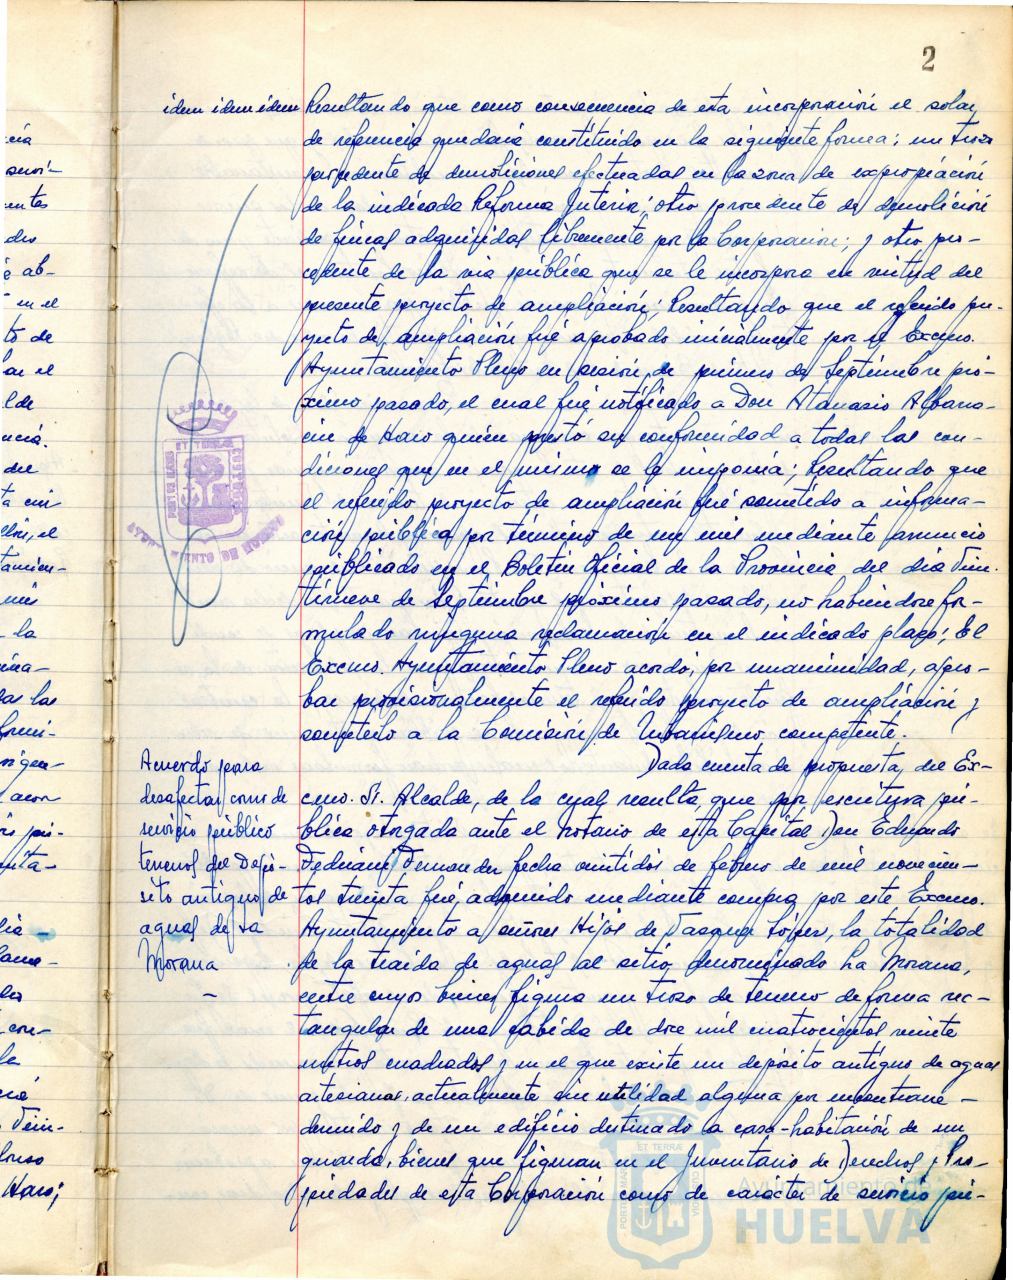 2
idem idem idem Resultando que como consecuencia de esta incorporación el solar
de referencia quedará constituido en la siguiente forma: un trozo
procedente de demoliciones efectuadas en la zona de expropiación
de la indicada Reforma Interior; otro procedente de demolición
de fincas adquiridas libremente por la Corporación; y otro pro-
cedente de la via pública que se le incorpora en virtud del
presente proyecto de ampliación; Resultando que el referido pro-
yecto de ampliación fué aprobado inicialmente por el Excmo.
Ayuntamiento Pleno en sesión de primero de Septiembre pró-
ximo pasado, el cual fué notificado a Don Atanasio Albarra-
cin de Haro quién prestó su conformidad a todas las con-
diciones que en el mismo se le imponía; Resultando que
el referido proyecto de ampliación fué sometido a informa-
ción pública por término de un mes mediante anuncio
publicado en el Boletín Oficial de la Provincia del día Vein-
tinueve de Septiembre próximo pasado, no habiendose for-
mulado ninguna reclamación en el indicado plazo; El
Excmo. Ayuntamiento Pleno acordó, por unanimidad, apro-
bar provisionalmente el referido proyecto de ampliación y
someterlo a la Comisión de Urbanismo competente.
Acuerdo para
desafectar como de
servicio público
terrenos del Depó-
sito antiguo de
aguas de La
Morana
Dada cuenta de propuesta del Ex-
cmo. Sr. Alcalde, de la cual resulta, que por escritura pú-
blica otorgada ante el Notario de esta Capital Don Eduardo
Fedriani Fernandez fecha veintidos de febrero de mil novecien-
tos treinta fué adquirido mediante compra por este Excmo.
Ayuntamiento a señores Hijos de Vazquez López, la totalidad
de la traida de aguas al sitio denominado La Morana,
entre cuyos bienes figura un trozo de terreno de forma rec-
tangular de una cabida de doce mil cuatrocientos veinte
metros cuadrados y en el que existe un depósito antiguo de aguas
artesianas, actualmente sin utilidad alguna por encontrarse
derruido y de un edificio destinado a casa-habitación de un
guarda, bienes que figuran en el Inventario de Derechos y Pro-
piedades de esta Corporación como de carácter de servicio pú-
AYUNTAMIENTO DE HUELVA
Ayuntamiento de
HUELVA